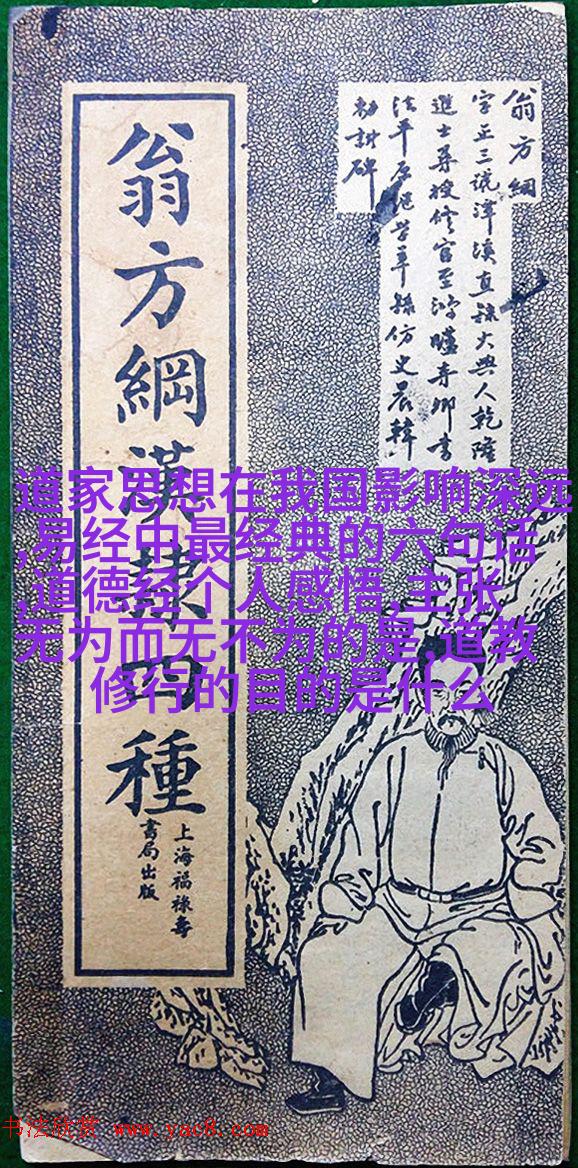 翁方綱
字正三號潭溪直隸大興人乾隆
進士尋授修官至鴻臚寺卿書
法平原 隸仿史晨韓
勑封碑
翁方綱漢隸四種
上海福祿壽
書局出版
道家思想在我国影响深远
,易经中最经典的六句话
,道德经个人感悟,主张
无为而无不为的是,道教
修行的目的是什么
书法欣赏 www.yac8.com